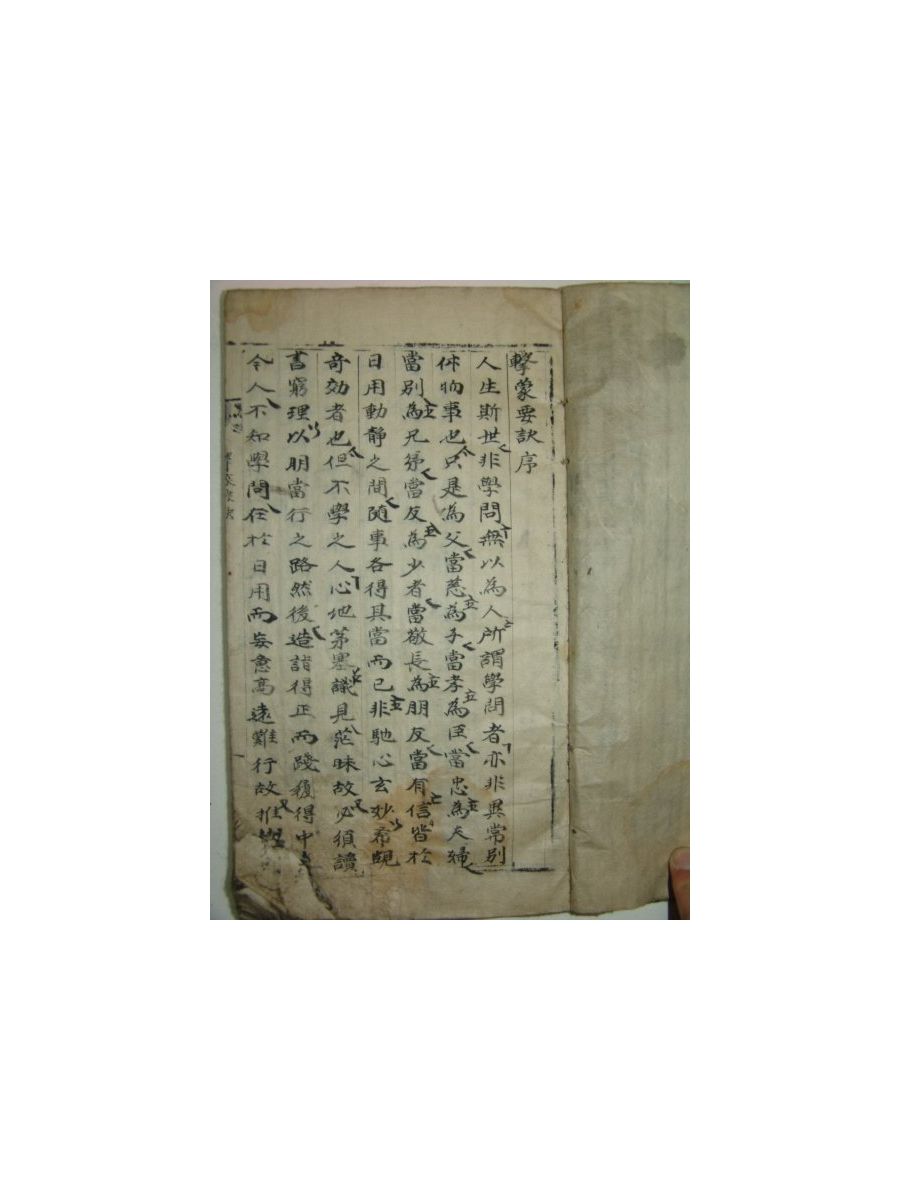 擊蒙要訣序
人生斯世非學問無以為人所謂學問者亦非異常別
件物事也只是為父當慈為子當孝為臣當忠為夫婦
當別為兄弟當友為少者當敬長為朋友當有信皆於
日用動靜之間隨事各得其當而已非馳心玄妙希覬
奇効者也但不學之人心地茅塞識見茫昧故必須讀
書窮理以明當行之路然後造詣得正而踐履得中矣
今人不知學問在於日用而妄意高遠難行故推與